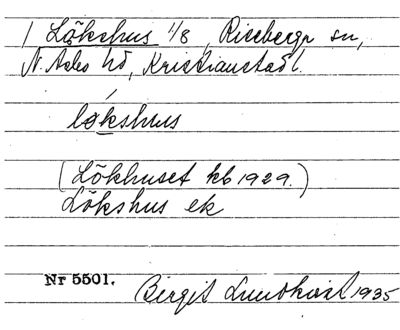 1 Lökshus 1/8, Riseberga sn,
N. Åsbo hd, Kristianstad l.
lökshus
(Lökhuset kb 1929.)
Lökshus ek
Nr 5501. Birgit Lundkvist 1935